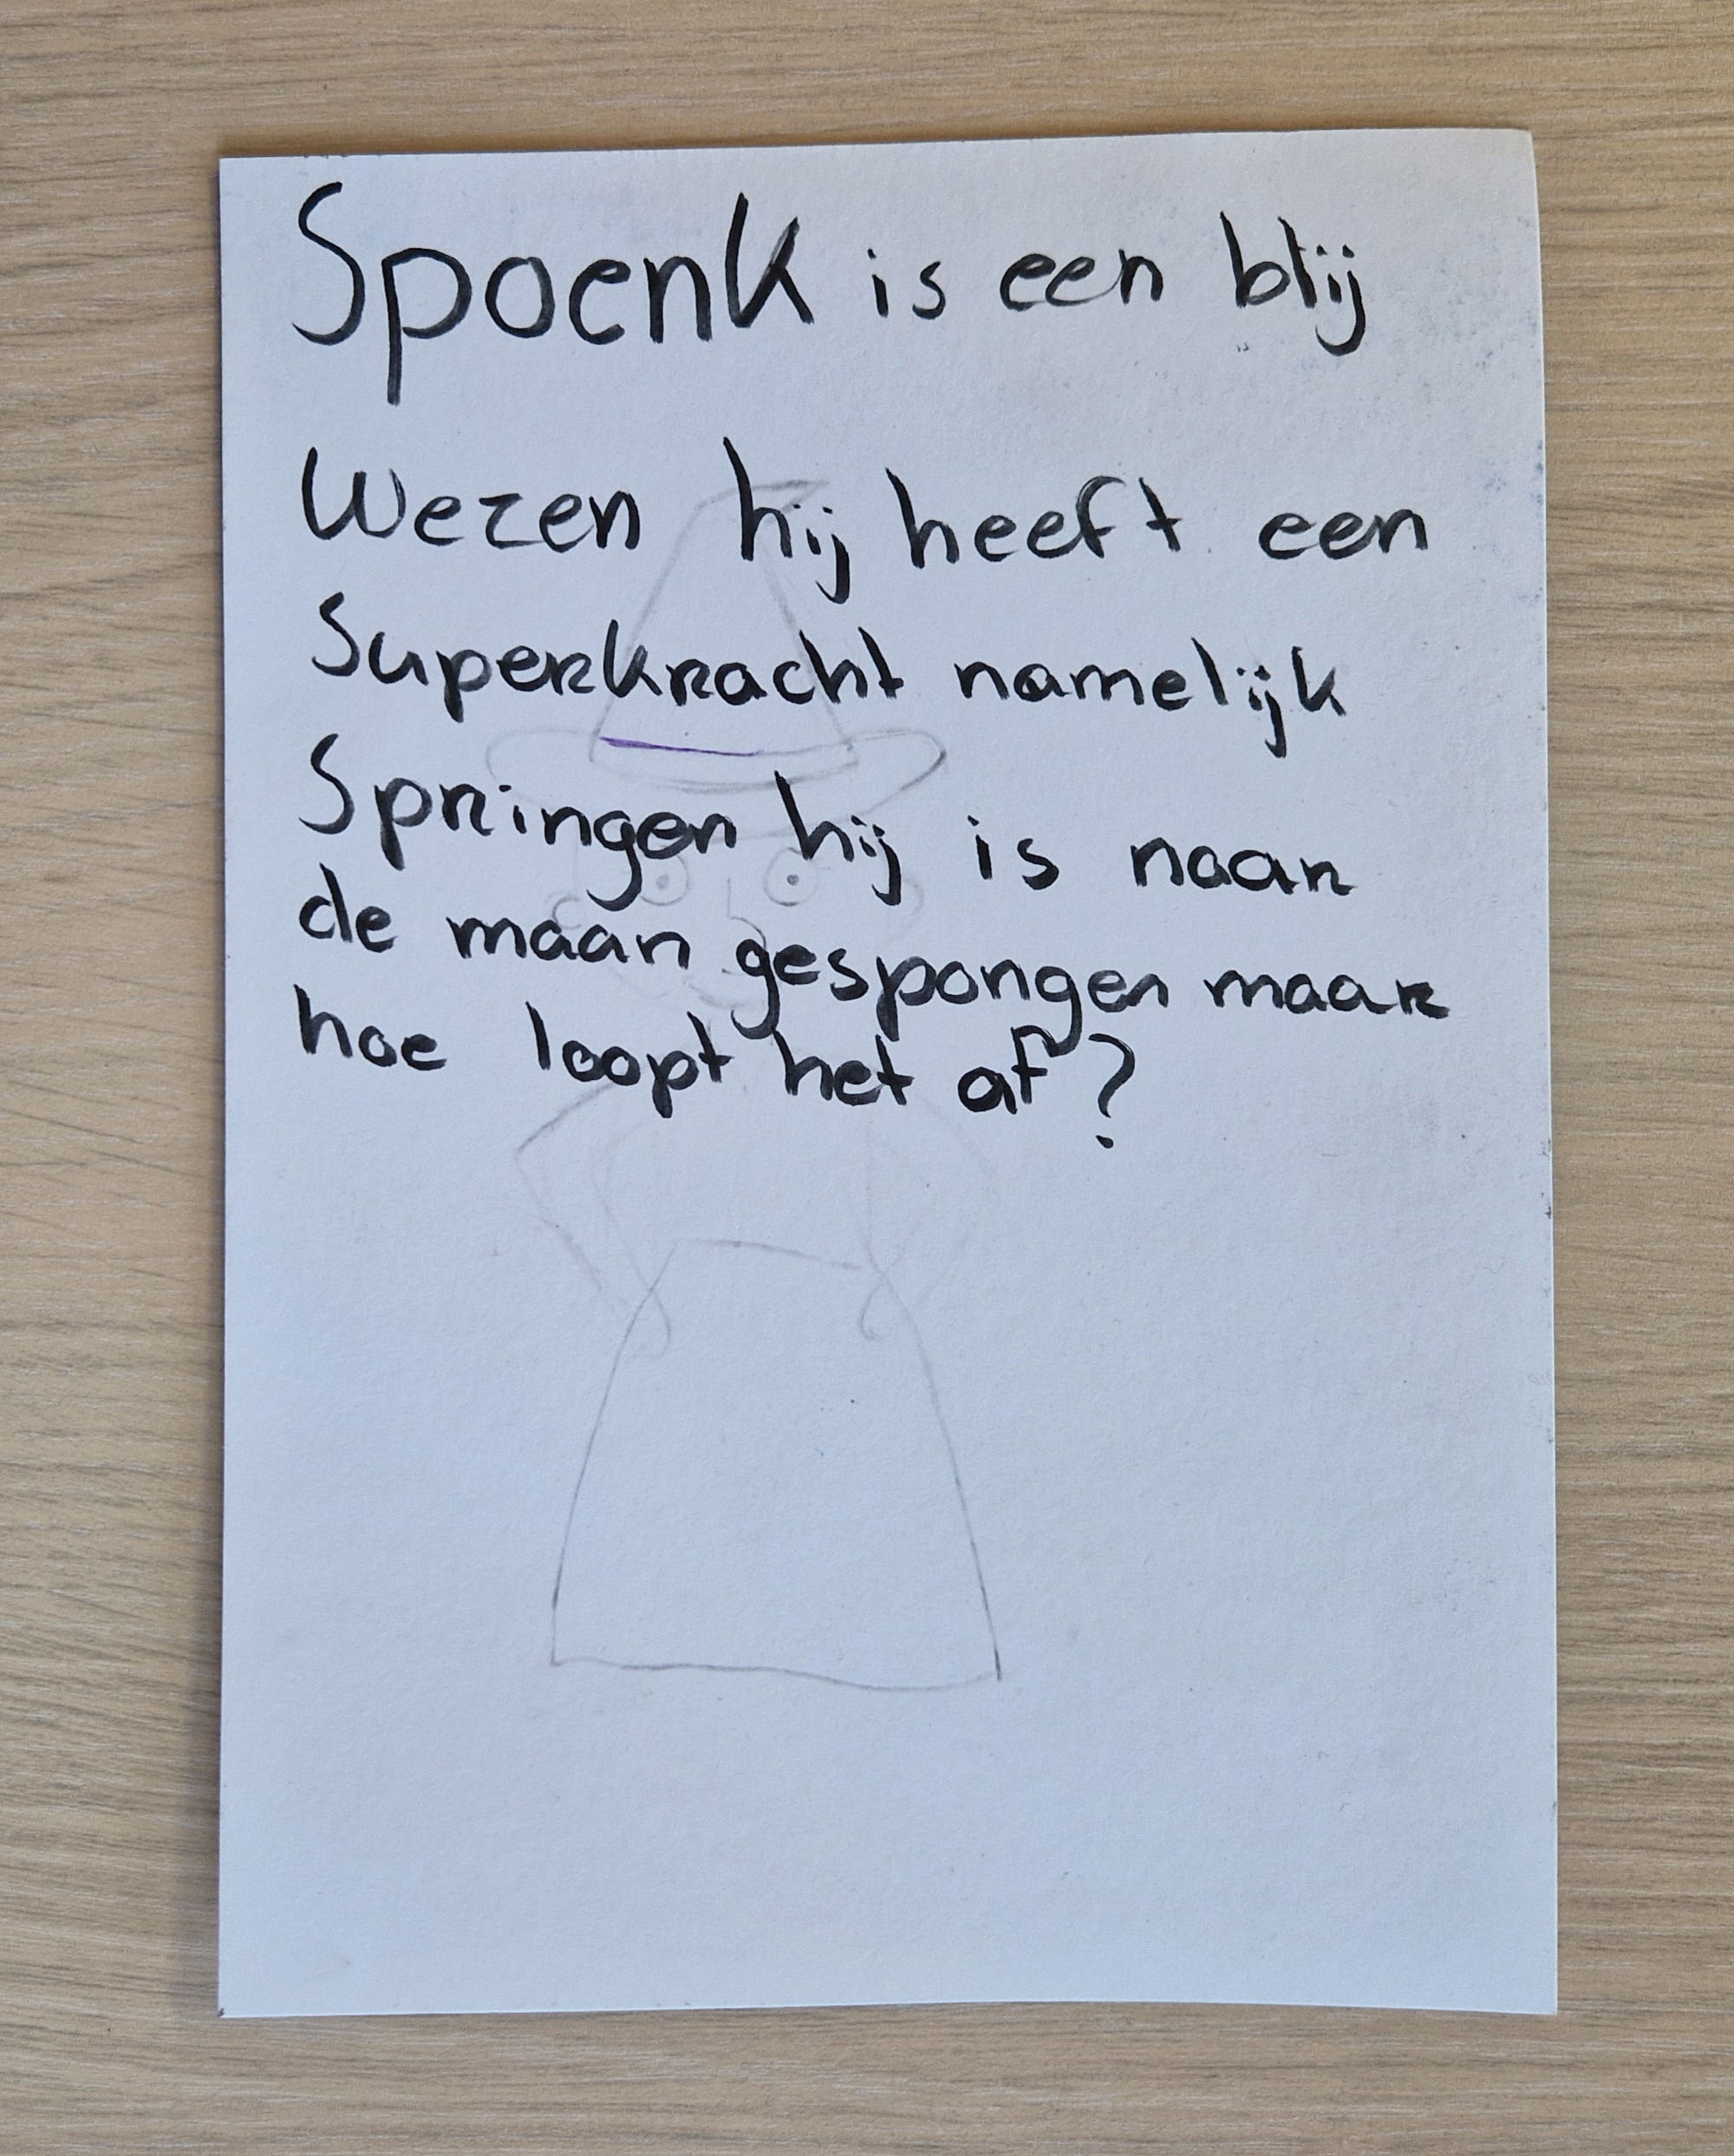 Spoenk is een blij
Wezen hij heeft een
Superkracht namelijk
Springen hij is naar
de maan gespongen maar
hoe loopt het af?